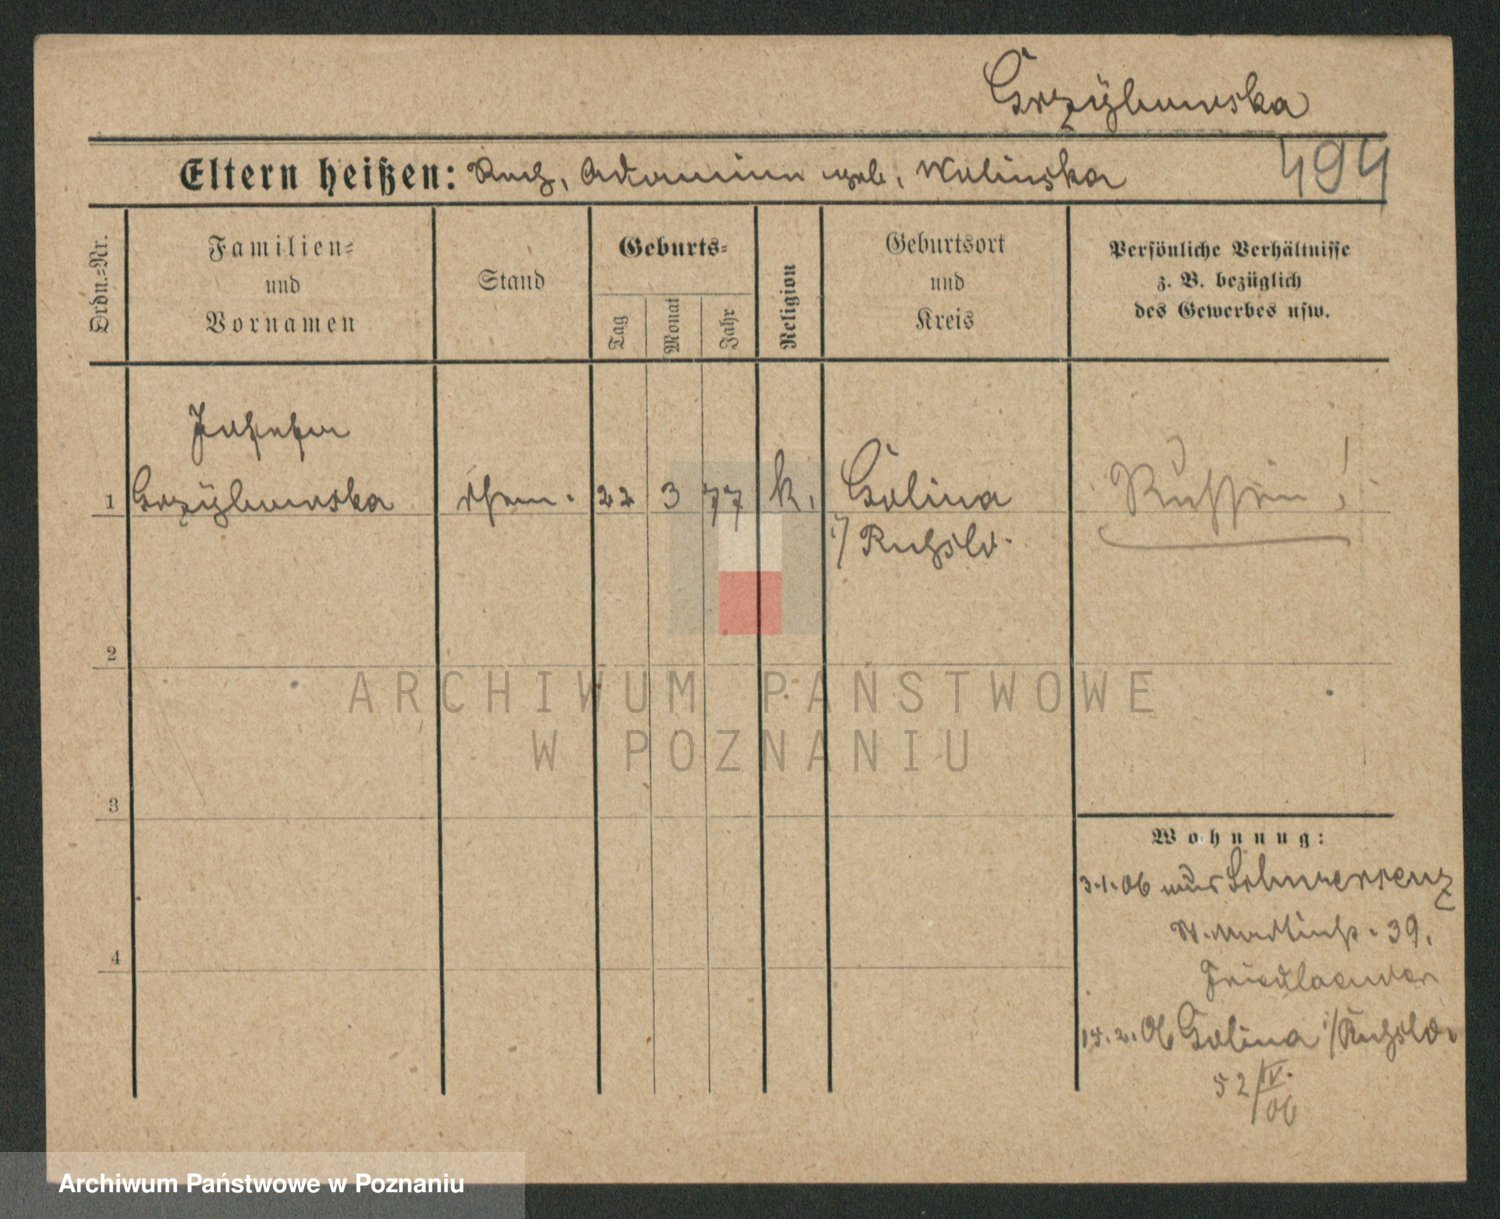 Grzybowska
Eltern heißen: Roch, Adamina geb. Wolinska
494
Ordn.-Nr.
Familien-
und
Vornamen
Stand
Geburts-
Tag
Monat
Jahr
Religion
Geburtsort
und
Kreis
Persönliche Verhältnisse
z. B. bezüglich
des Gewerbes usw.
Josefa
1 Grzybowska 22 3 77 k. Golina Russin!
i/ Rußld.
2
ARCHIWUM PAŃSTWOWE
W POZNANIU
3
Wohnung:
3.1.06 aus Schwersenz
St. Martinstr. 39.
Friedlaender
14.2.06 Golina i/Rußld.
52/IV.
06
4
Archiwum Państwowe w Poznaniu